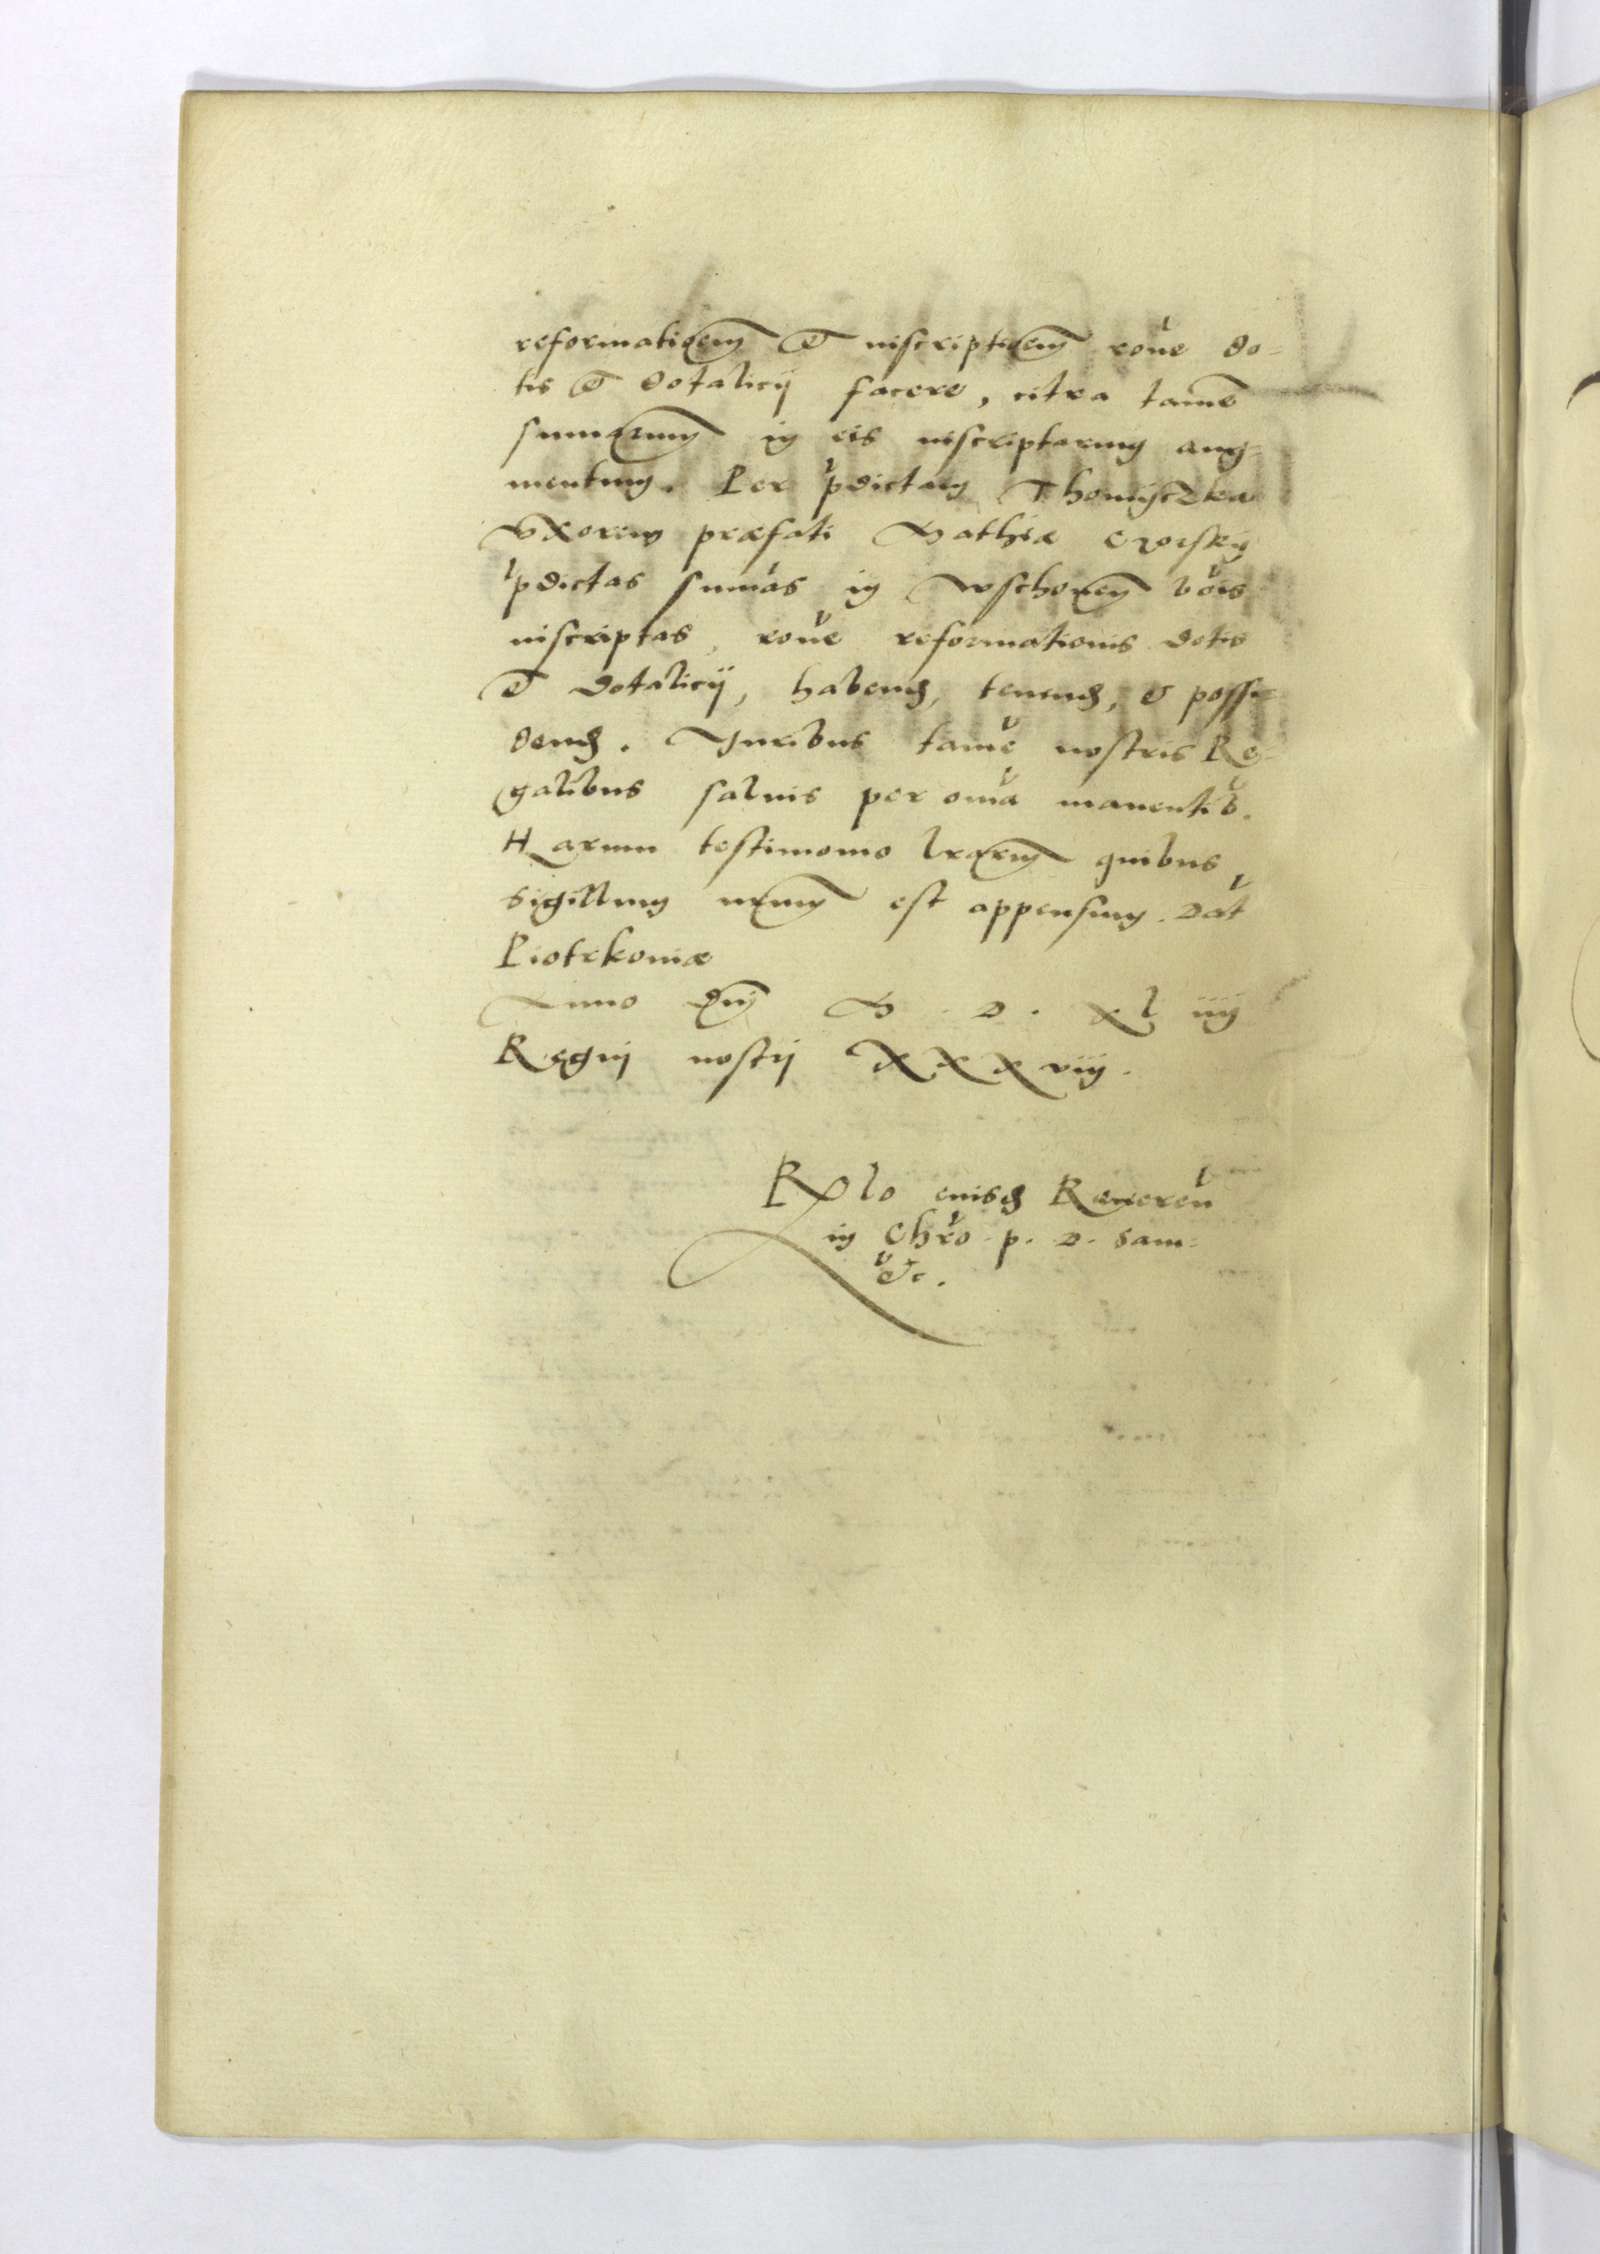 reformatiõem et inscriptiõem rõne do-
tis et dotalicij facere, citra tamẽ
summarum in eis inscriptarum aug-
mentum. Per p̃dictam
Vxorem præfati Mathiæ
p̃dictas summas in bõis
inscriptas, rõne reformationis dotis
et dotalicij, habend, tenend, & possi-
dend. Juribus tamẽ nostris Re-
galibus saluis per om̃ia manentib̃.
Harum testimonio lrarum quibus
sigillum nrum est appensum. Dat̃
Piotrkoviæ
Anno Dnj M. D. xl iiij
Regnj nostrj XXXviij.
Rlo eiusd Reueren̄
in Chr̃o p. D. Sam-
etc.